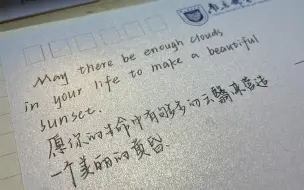 May there be enough clouds
in your life to make a beautiful
sunset.
愿你的生命中有够多的云翳来营造
一个美丽的黄昏.